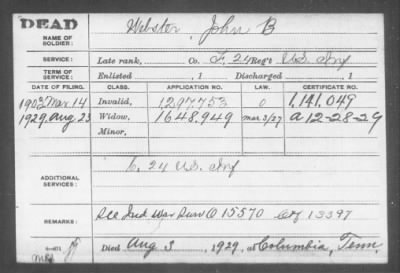 DEAD
NAME OF SOLDIER: Webster, John B
SERVICE: Late rank, Co. F, 24 Reg't U.S. Inf
TERM OF SERVICE: Enlisted , 1 Discharged , 1
DATE OF FILING. CLASS. APPLICATION NO. LAW. CERTIFICATE NO.
1903 Mar. 14 Invalid, 1297753 0 1,141,049
1929, Aug 23 Widow, 1648,949 Mar 3/27 a 12-28-29
Minor,
ADDITIONAL SERVICES: 24 U.S. Inf
REMARKS: See Ind War Surv O 15570 Ctf 13397
Died Aug 3, 1929, at Columbia, Tenn.